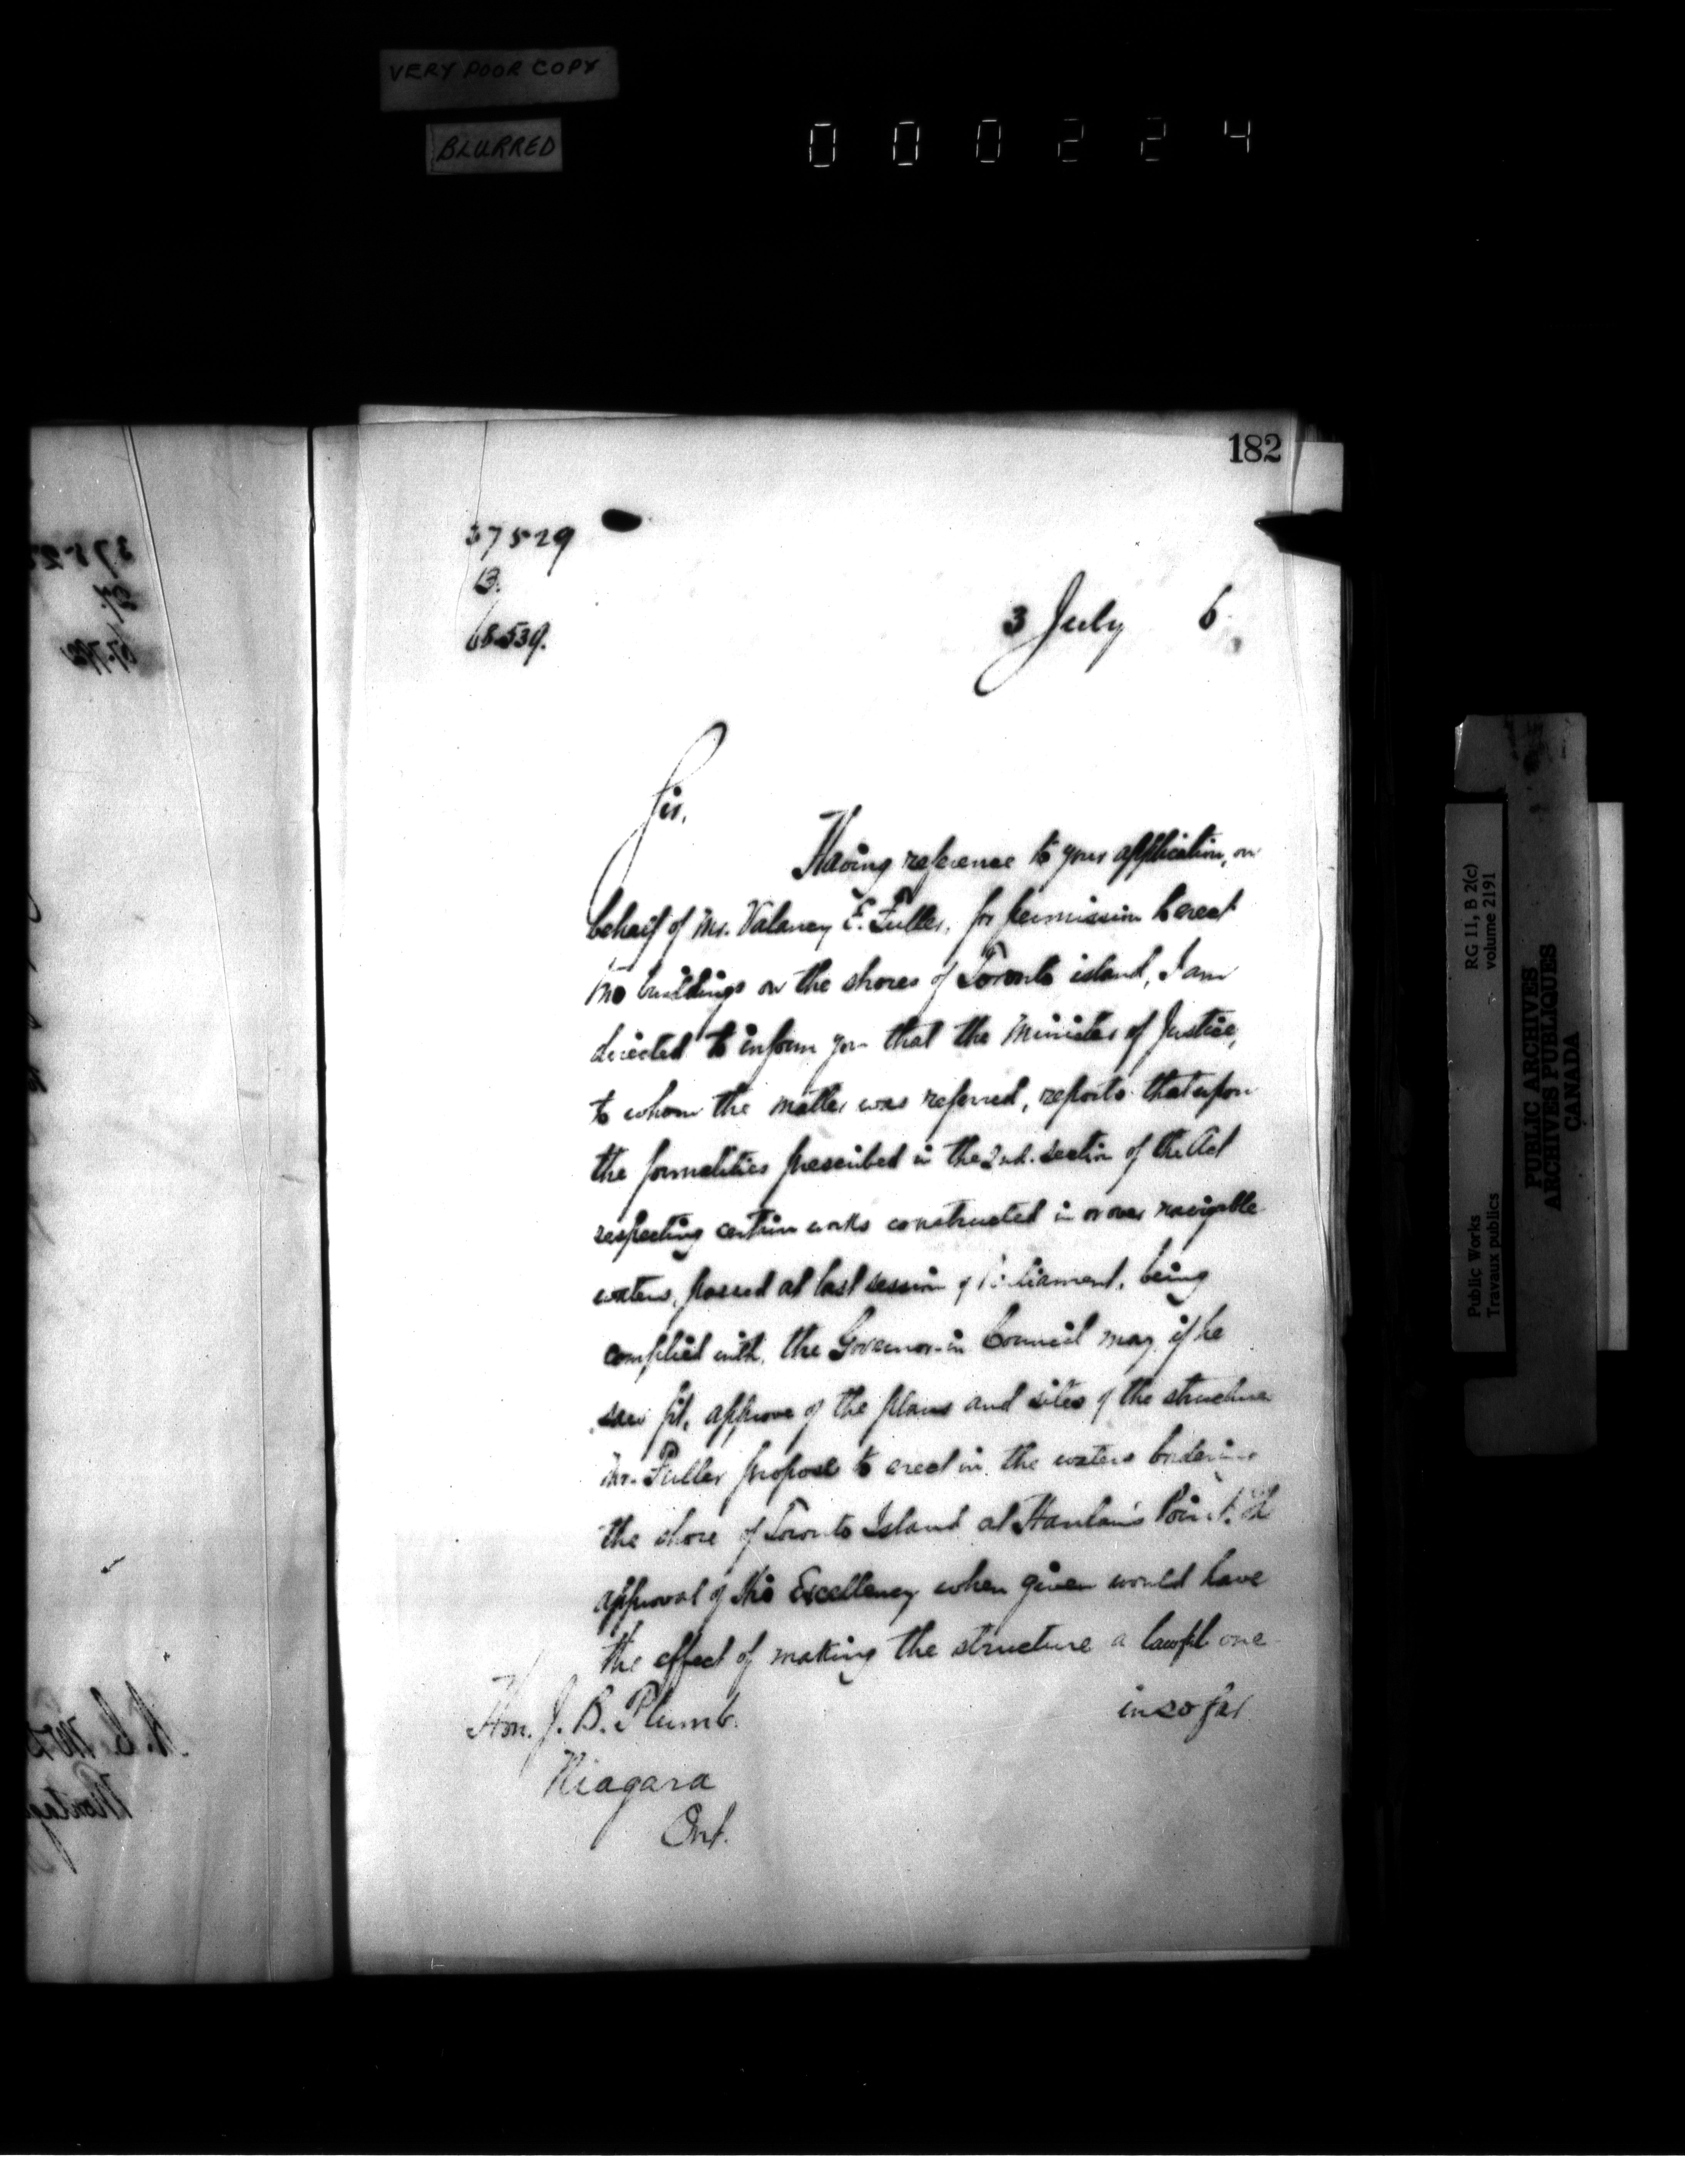 VERY POOR COPY
BLURRED
000224
182
37529
B.
68539.
3 July 6
Sir,
Having reference to your application, on
behalf of Mr. Valancy E. Fuller, for permission to erect
two buildings on the shores of Toronto island, I am
directed to inform you that the Minister of Justice,
to whom the matter was referred, reports that upon
the formalities prescribed in the 2nd. section of the Act
respecting certain works constructed in or over navigable
waters, passed at last session of Parliament, being
complied with, the Governor-in Council may, if he
sees fit, approve of the plans and sites of the structures
Mr. Fuller proposes to erect in the waters bordering
the shore of Toronto Island at Hanlan's Point. The
approval of His Excellency when given would have
the effect of making the structure a lawful one
in so far
Hon. J. B. Plumb.
Niagara
Ont.
Public Works
Travaux publics
RG 11, B 2(c)
volume 2191
PUBLIC ARCHIVES
ARCHIVES PUBLIQUES
CANADA